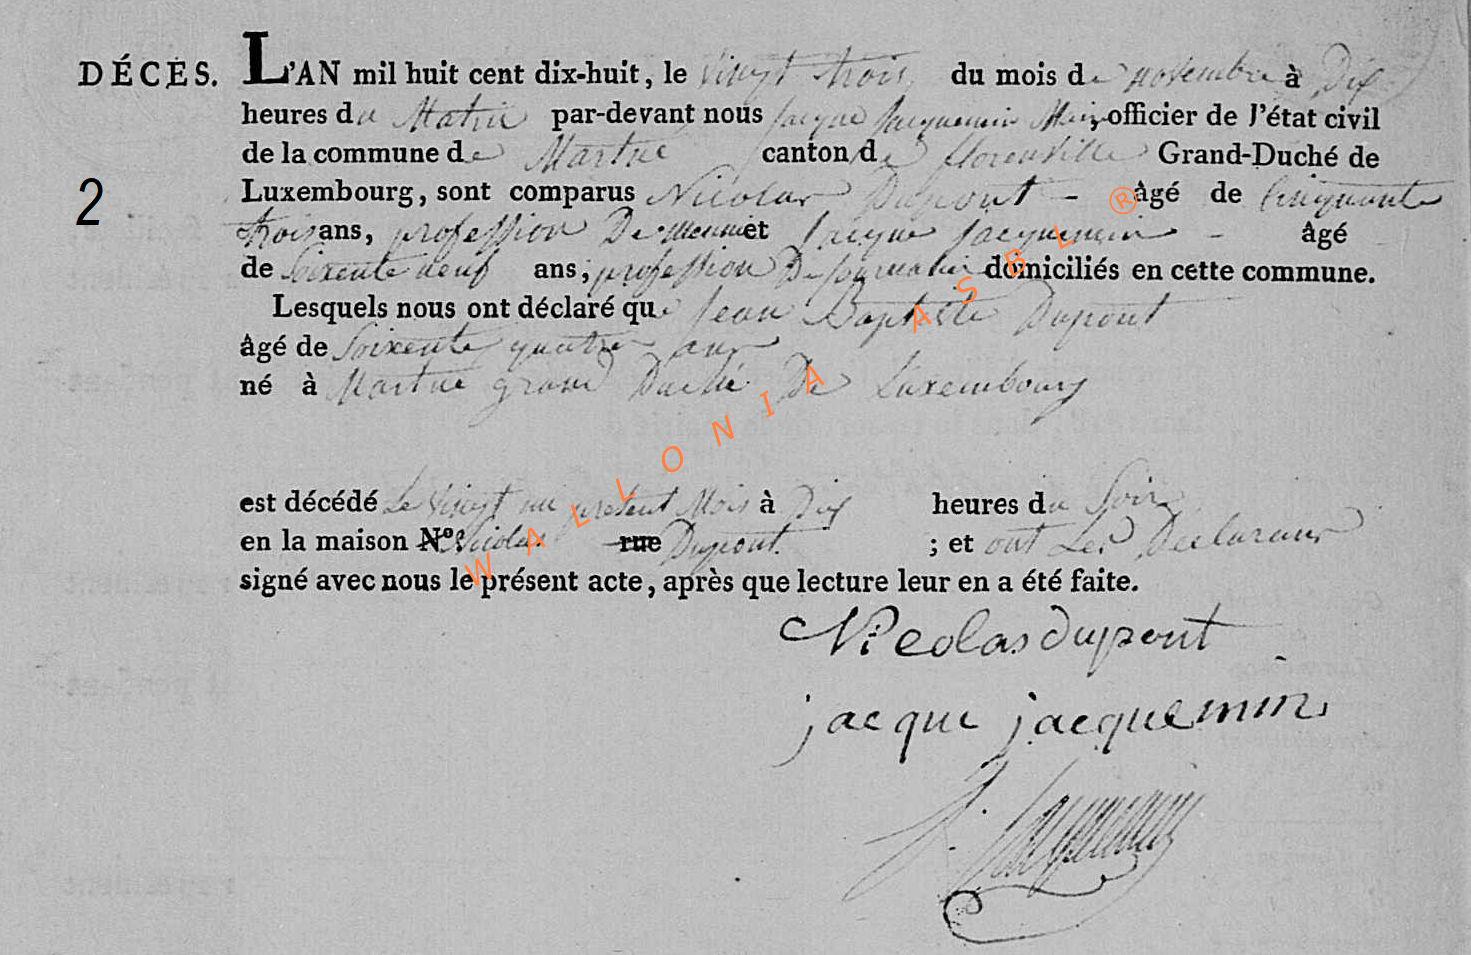 DÉCÈS. L'AN mil huit cent dix-huit, le vingt trois du mois de novembre à Dix
heures du Matin par-devant nous jacque jacquemin Maire, officier de l'état civil
de la commune de Martué canton de florenville Grand-Duché de
2
Luxembourg, sont comparus Nicolas Dupont - âgé de Cinquante
trois ans, profession De meunier et jacque jacquemin - âgé
de Soixente neuf ans, profession De domiciliés en cette commune.
Lesquels nous ont déclaré que jean Baptiste Dupont
âgé de Soixente quatre ans
né à Martué grand Duché De Luxembourg
est décédé Le vingt un present Mois à Dix heures du Soir
en la maison N° Nicolas rue Dupont ; et ont Les Declarans
signé avec nous le présent acte, après que lecture leur en a été faite.
Nicolas dupont
jacque jacquemin
J. Jacquemin
WALLONIA ASBL ®